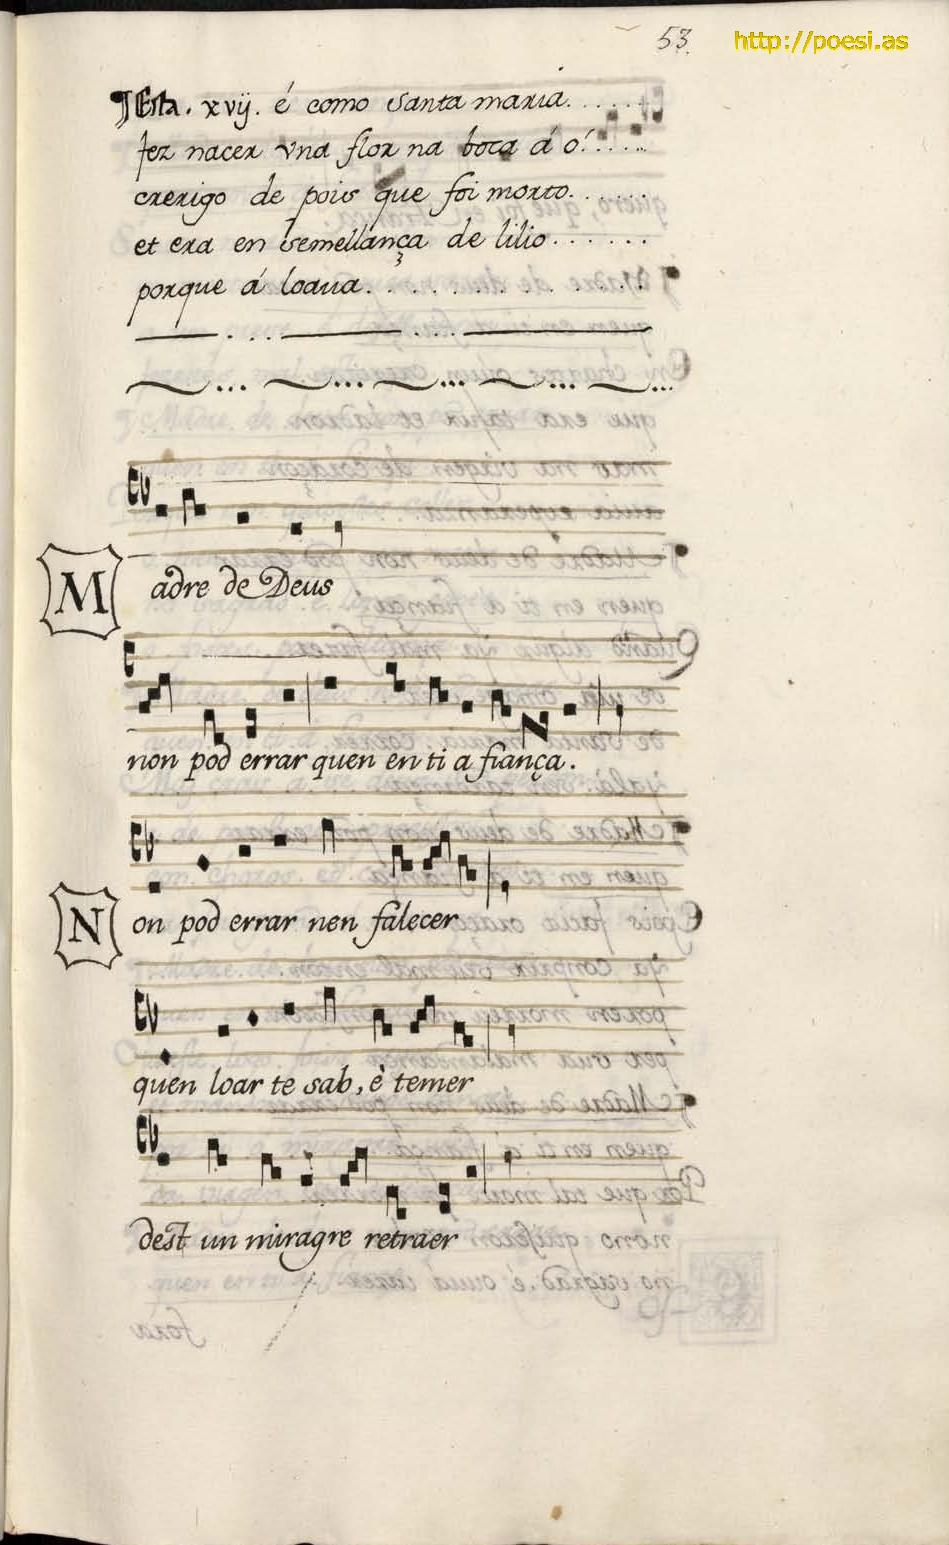 53
http://poesi.as
Esta. xvij. é como Santa maria.
fez nacer vna flor na boca á ó
crerigo de pois que foi morto.
et era en semellança de lilio
porque á loaua.
Madre de Deus
non pod errar quen en ti a fiança.
Non pod errar nen falecer
quen loar te sab, è temer
dest un miragre retraer